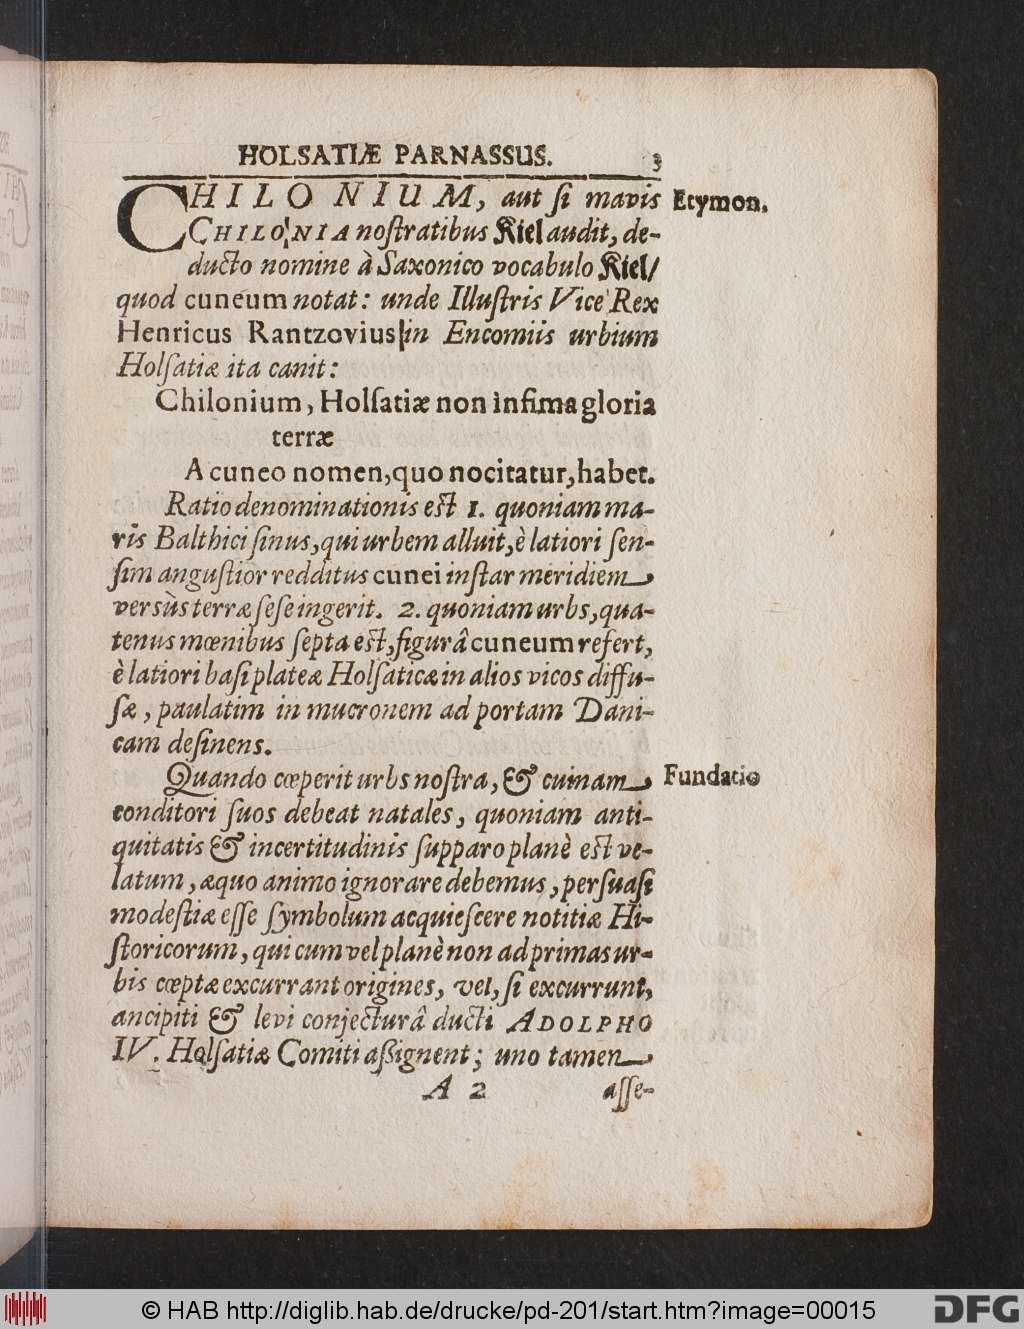 HOLSATIÆ PARNASSUS. 3
CHILONIUM, aut ſi mavis Etymon.
CHILONIA noſtratibus Kiel audit, de-
ducto nomine à Saxonico vocabulo Kiel/
quod cuneum notat: unde Illuſtris Vice Rex
Henricus Rantzovius in Encomiis urbium
Holſatiæ ita canit:
Chilonium, Holſatiæ non infima gloria
terræ
A cuneo nomen, quo nocitatur, habet.
Ratio denominationis eſt 1. quoniam ma-
ris Balthici ſinus, qui urbem alluit, è latiori ſen-
ſim anguſtior redditus cunei inſtar meridiem
versùs terræ ſeſe ingerit. 2. quoniam urbs, qua-
tenus mœnibus ſepta eſt, figurâ cuneum refert,
è latiori baſi plateæ Holſaticæ in alios vicos diffu-
ſæ, paulatim in mucronem ad portam Dani-
cam deſinens.
Quando cœperit urbs noſtra, & cuinam Fundatio
conditori ſuos debeat natales, quoniam anti-
quitatis & incertitudinis ſupparo planè eſt ve-
latum, æquo animo ignorare debemus, perſuaſi
modeſtiæ eſſe ſymbolum acquieſcere notitiæ Hi-
ſtoricorum, qui cum vel planè non ad primas ur-
bis cœptæ excurrant origines, vel, ſi excurrunt,
ancipiti & levi conjecturâ ducti ADOLPHO
IV. Holſatiæ Comiti aßignent; uno tamen
A 2 aſſe-
© HAB http://diglib.hab.de/drucke/pd-201/start.htm?image=00015 DFG